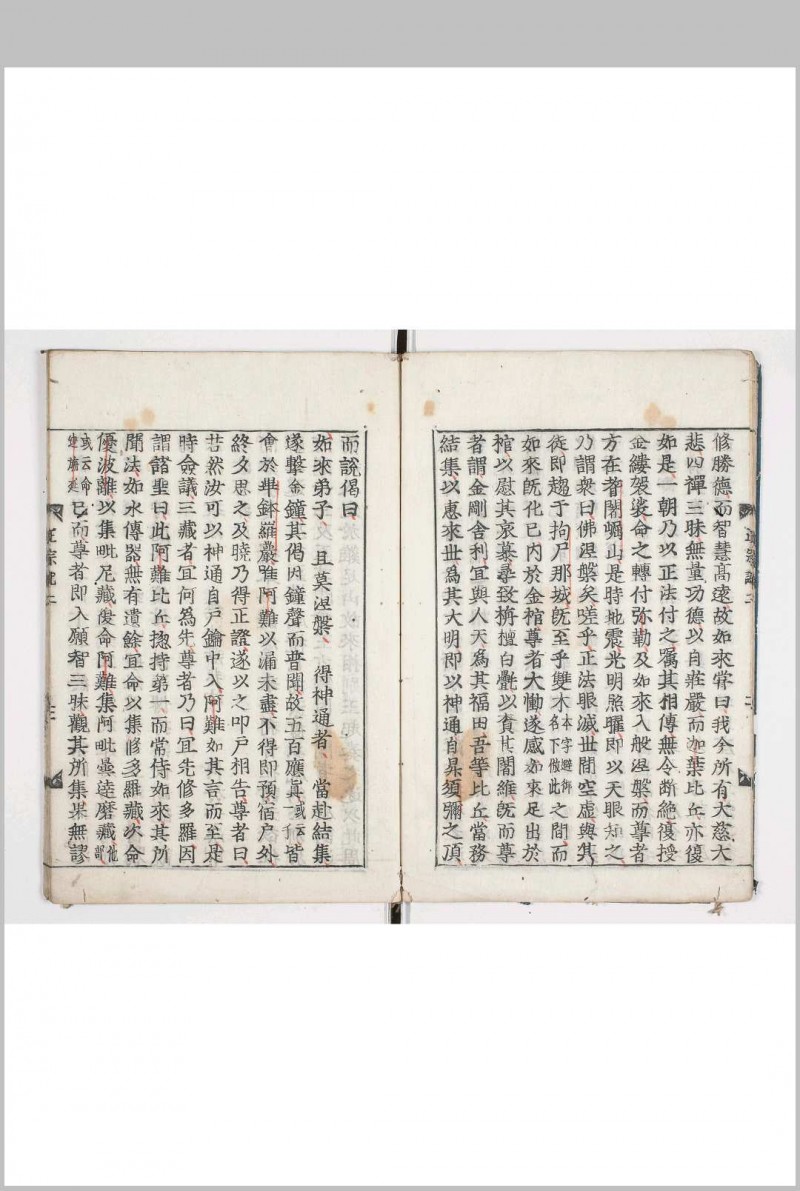 修勝德而智慧高遠故如來甞曰我今所有大慈大
悲四禪三昧無量功德以自莊嚴而迦葉比丘亦復
如是一朝乃以正法付之囑其相傳無令斷絶復授
金縷袈裟命之轉付弥勒及如來入般涅槃而尊者
方在耆闍崛山是時地震光明照曜即以天眼知之
乃謂衆曰佛涅槃矣嗟乎正法眼滅世間空虛與其
徒即趨于拘尸那城旣至乎雙木本字避御名下倣此之間而
如來旣化已內於金棺尊者大慟遂感如來足出於
棺以慰其哀慕尋致栴檀白㲲以資其闍維旣而尊
者謂金剛舍利宜與人天爲其福田吾等比丘當務
結集以惠來世爲其大明即以神通自昇須彌之頂
正宗記二
而說偈曰
如來弟子 且莫涅槃 得神通者 當赴結集
遂擊金鐘其偈因鐘聲而普聞故五百應真或云一千皆
會於畢鉢羅巖唯阿難以漏未盡不得即預宿户外
終夕思之及曉乃得正證遂以之叩户相告尊者曰
若然汝可以神通自户鑰中入阿難如其言而至是
時僉議三藏者宜何爲先尊者乃曰宜先修多羅因
謂諸聖曰此阿難比丘揔持第一而常侍如來其所
聞法如水傳器無有遺餘宜命以集修多羅藏次命
優波離以集毗尼藏復命阿難集阿毗曇達磨藏他部
或云命迦旃延已而尊者即入願智三昧觀其所集果無謬
正宗記二